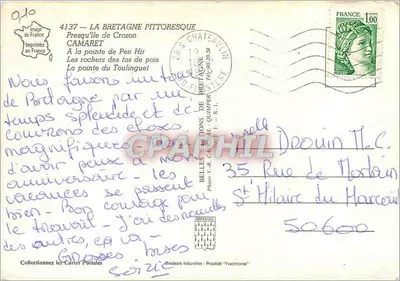 0,10
Image de France
Imprimée en France
4137 — LA BRETAGNE PITTORESQUE
Presqu'île de Crozon
CAMARET
A la pointe de Pen Hir
Les rochers des tas de pois
La pointe du Toulinguet
29 S CHATEAULIN
FINISTERE
FRANCE
1,00
Nous faisons un tour
de Bretagne par un
temps splendide et dé-
couvrons des choses
magnifiques
d'avoir pensé à mon
anniversaire - les
vacances se passent
bien - Bon courage pour
le travail - J'ai des nouvelles
des autres, ça va -
Grosses bises
BELLES ÉDITIONS DE BRETAGNE
CARTEPHIL
Melle
DROUIN M.C.
35 Rue de Mortain
St Hilaire du Harcouet
50600
Collectionnez les Cartes Postales
Couleurs naturelles